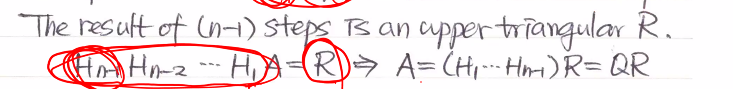 The result of (n-1) steps is an upper triangular R.
Hn-1 Hn-2 ... H1 A = R ⇒ A = (H1 ... Hn-1) R = QR